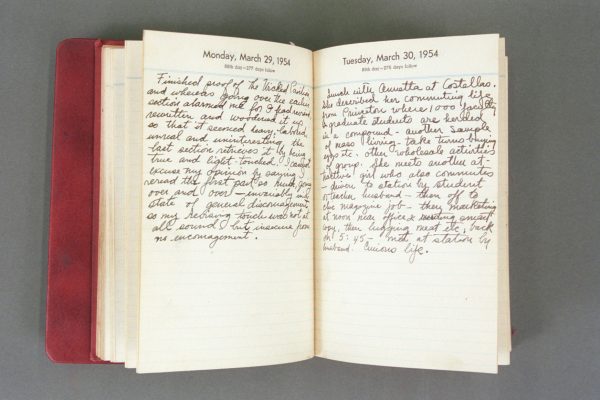 Monday, March 29, 1954
88th day—277 days follow
Finished proof of The Wicked Pavilion
and whereas going over the earlier
section alarmed me for I had revised,
rewritten and woodened it up
so that it seemed heavy, labored,
unreal and uninteresting the
last section retrieves it by being
true and light touched. I cannot
excuse my opinion by saying I
reread the first part so much, going
over and over — invariably in a
state of general discouragement
so my revising touch was not at
all sound but insecure from
no encouragement.
Tuesday, March 30, 1954
89th day—276 days follow
Lunch with at Costellos.
She described her commuting life
from Princeton where 1000 faculty
& graduate students are herded
in a compound - another sample
of mass living - take turns buying
etc. other wholesale activities
of group. She meets another at-
tractive girl who also commutes
- driven to station by student
or teacher husband - then off to
the magazine job - then marketing
at noon near office &
way, then lugging meat etc, back
on 5:45 - met at station by
husband. Curious life.